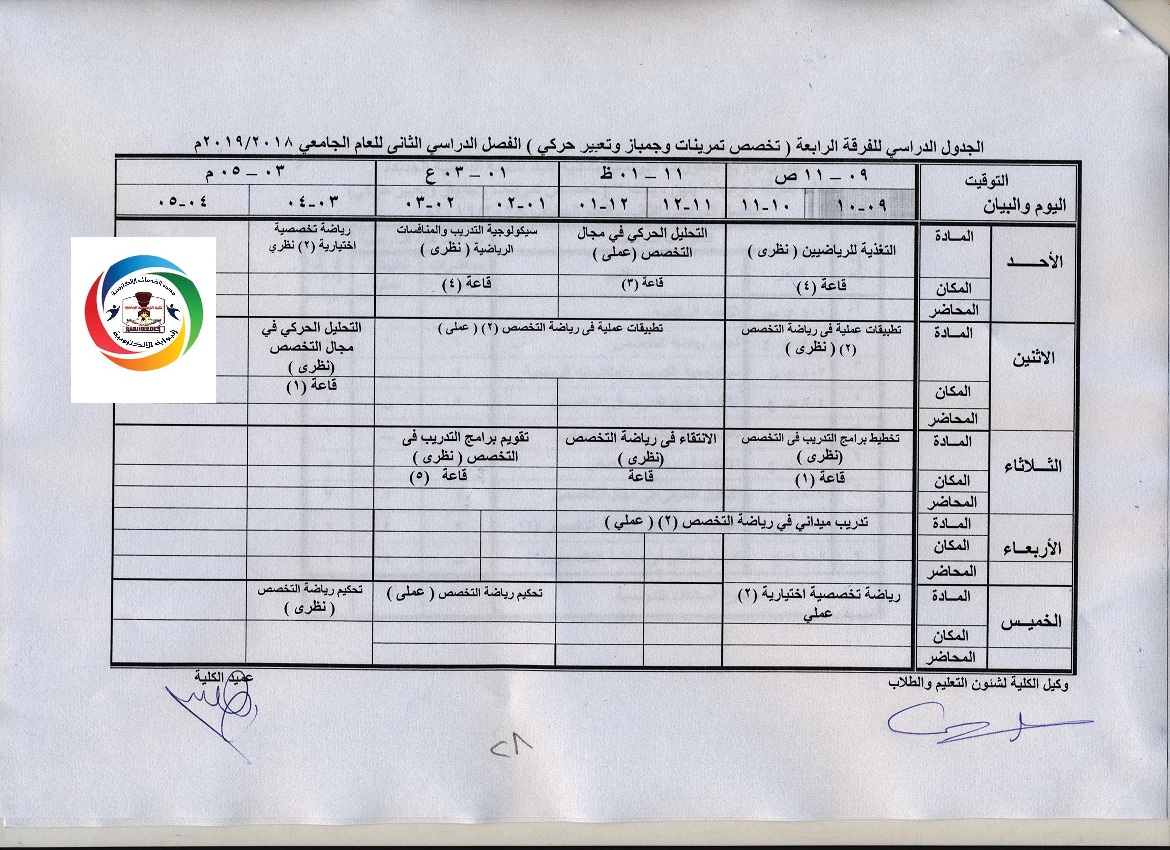 الجدول الدراسي للفرقة الرابعة ( تخصص تمرينات وجمباز وتعبير حركي ) الفصل الدراسي الثانى للعام الجامعي ٢٠١٩/٢٠١٨م
التوقيت
اليوم والبيان
٠٩ – ١١ ص
١١ – ٠١ ظ
٠١ – ٠٣ ع
٠٣ – ٠٥ م
٠٩-١٠
١٠-١١
١١-١٢
١٢-٠١
٠١-٠٢
٠٢-٠٣
٠٣-٠٤
٠٤-٠٥
الأحــد
المـادة
التغذية للرياضيين ( نظرى )
التحليل الحركي في مجال
التخصص (عملى )
سيكولوجية التدريب والمنافسات
الرياضية ( نظرى )
رياضة تخصصية
اختيارية (٢) نظري
المكان
قاعة (٤)
قاعة (٣)
قاعة (٤)
المحاضر
الاثنين
المـادة
تطبيقات عملية فى رياضة التخصص
(٢) ( نظرى )
تطبيقات عملية فى رياضة التخصص (٢) ( عملى )
التحليل الحركي في
مجال التخصص
(نظرى )
المكان
قاعة (١)
المحاضر
الثـلاثاء
المـادة
تخطيط برامج التدريب فى التخصص
(نظرى )
الانتقاء فى رياضة التخصص
(نظرى )
تقويم برامج التدريب فى
التخصص ( نظرى )
المكان
قاعة (١)
قاعة
قاعة (٥)
المحاضر
الأربعـاء
المـادة
تدريب ميداني في رياضة التخصص (٢) ( عملي )
المكان
المحاضر
الخميـس
المـادة
رياضة تخصصية اختيارية (٢)
عملي
تحكيم رياضة التخصص ( عملى )
تحكيم رياضة التخصص
( نظرى )
المكان
المحاضر
وكيل الكلية لشئون التعليم والطلاب
عميد الكلية
٢٨